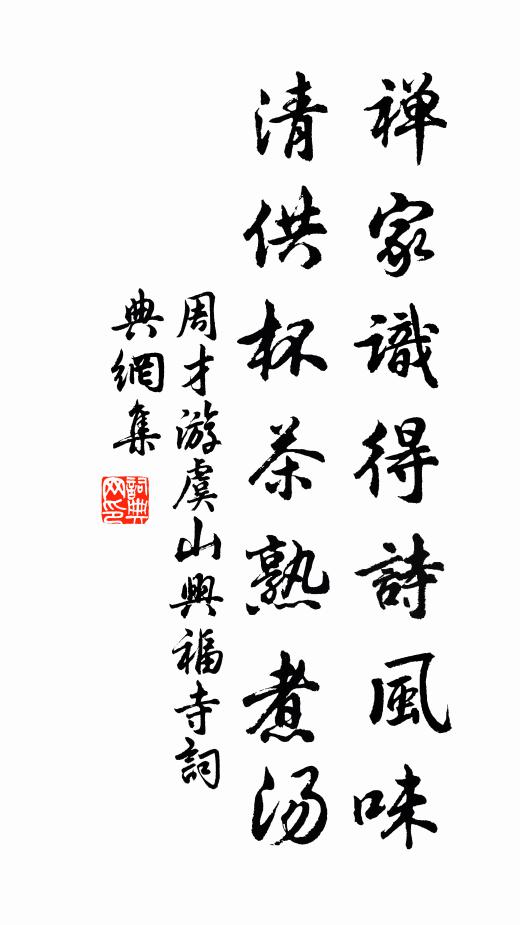 禅家識得詩風味
清供杯茶熟煮汤
周才游虞山興福寺詞
典網集
詞典网印